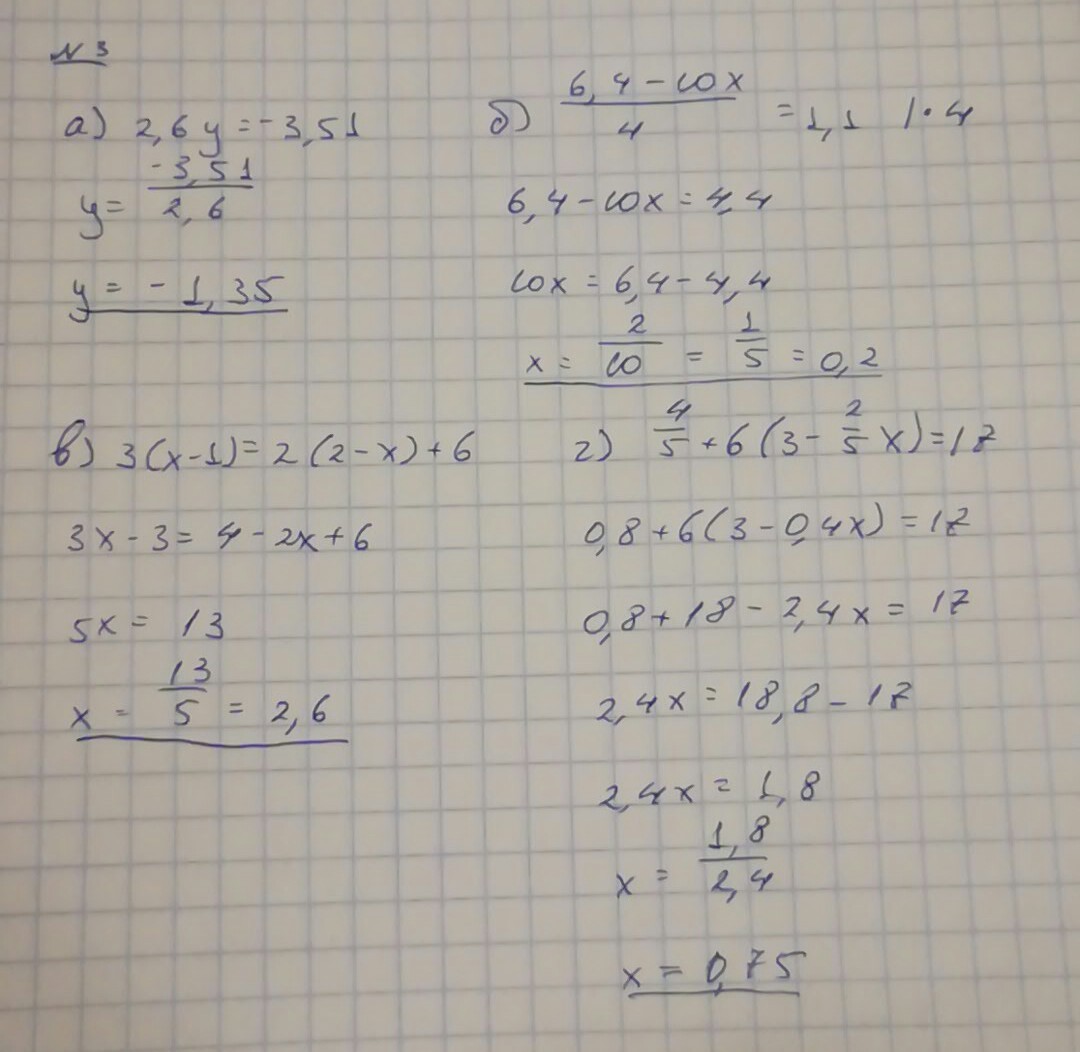 N 3
а) 2,6 y = -3,51
y = -3,51/2,6
y = - 1,35
б) (6,4 - 10x)/4 = 1,1 | · 4
6,4 - 10x = 4,4
10x = 6,4 - 4,4
x = 2/10 = 1/5 = 0,2
в) 3(x-1) = 2(2-x)+6
3x - 3 = 4 - 2x + 6
5x = 13
x = 13/5 = 2,6
г) 4/5 + 6(3 - 2/5 x) = 17
0,8 + 6(3 - 0,4x) = 17
0,8 + 18 - 2,4x = 17
2,4x = 18,8 - 17
2,4x = 1,8
x = 1,8/2,4
x = 0,75